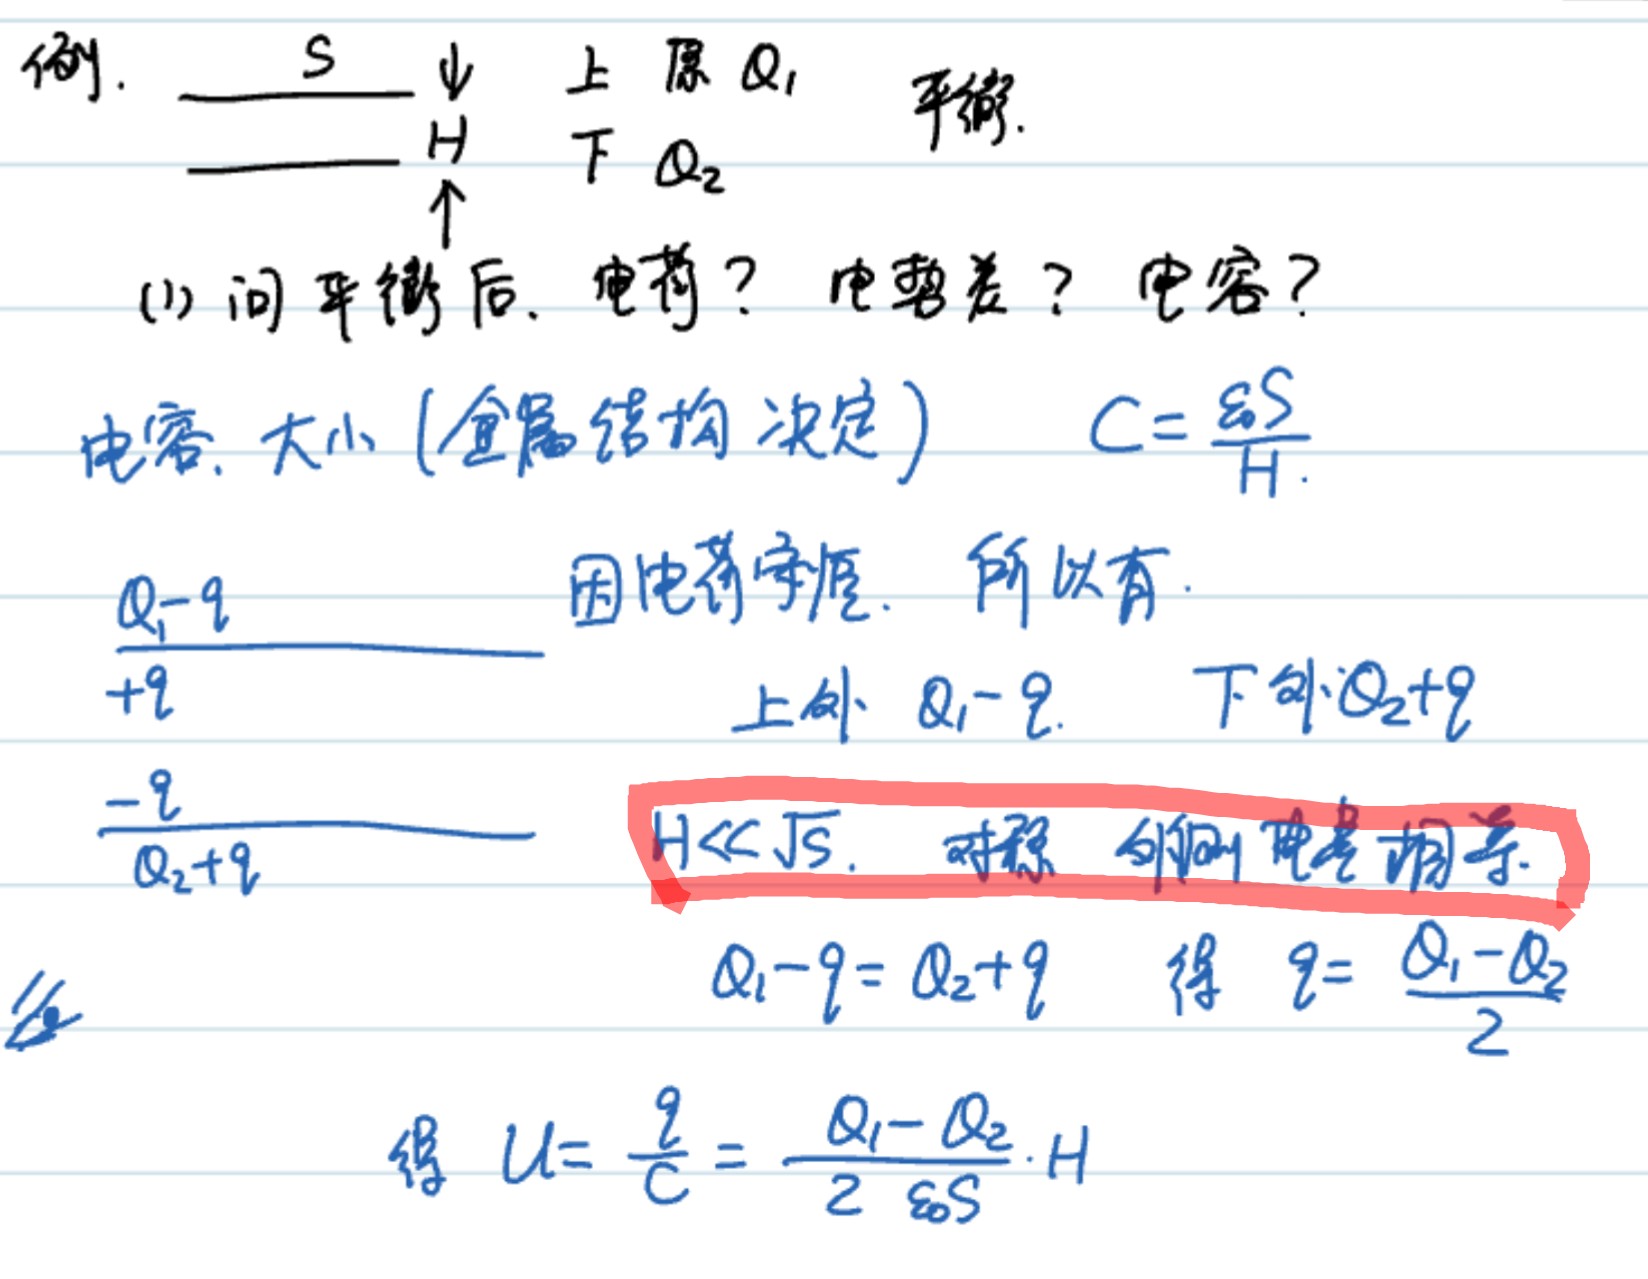 例. S ↓ 上 原 Q₁ 平衡.
H 下 Q₂
↑
(1) 问平衡后. 电荷? 电势差? 电容?
电容. 大小 (金属结构决定) C = ε₀S/H.
Q₁-q 因电荷守恒. 所以有.
+q 上外. Q₁-q. 下外. Q₂+q
-q H<<√S. 对称 外侧电荷相等.
Q₂+q
Q₁-q = Q₂+q 得 q = (Q₁-Q₂)/2
得 U = q/C = (Q₁-Q₂)/(2 ε₀S) · H